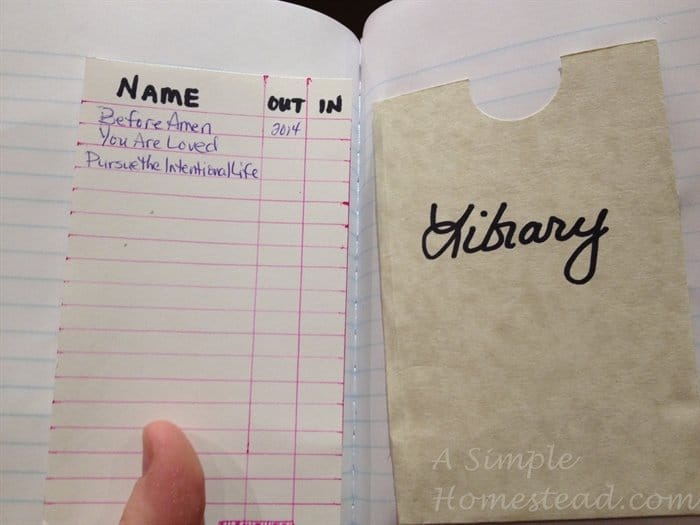 NAME OUT IN
Before Amen 2014
You Are Loved
Pursue the Intentional Life
Library
A Simple
Homestead.com